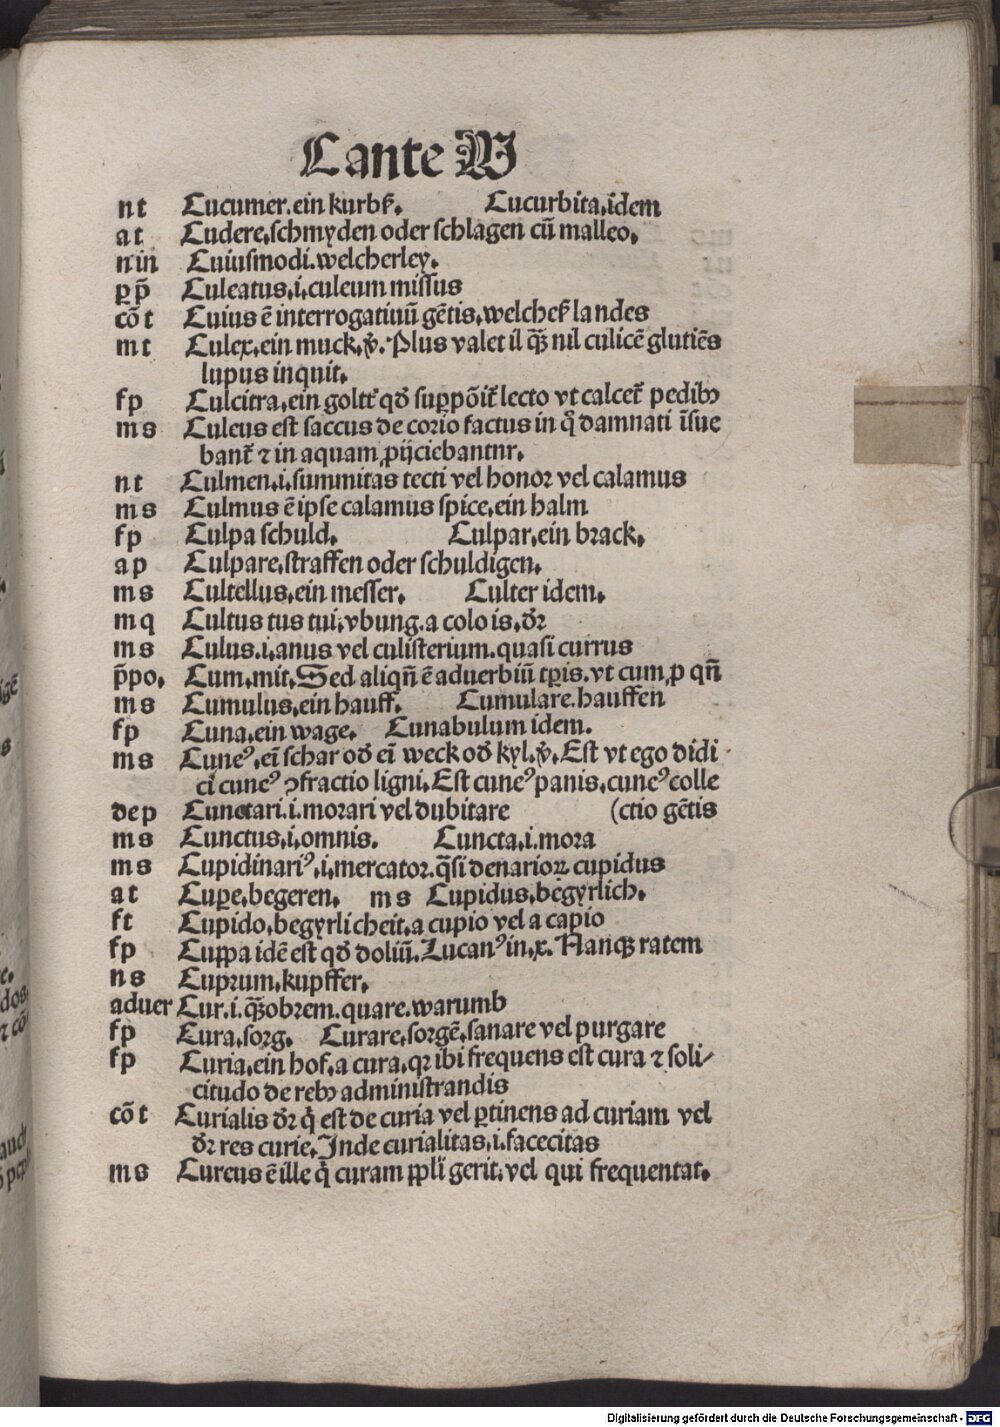 C ante W
nt Cucumer.ein kurbß. Cucurbita.idem
at Cudere.schmyden oder schlagen cū malleo.
nin Cuiusmodi.welcherley.
ꝑp̄ Culeatus.i.culeum missus
cōt Cuius ē interrogatiuū gētis.welcheß landes
mt Culex.ein muck.v̄.Plus valet il qȝ nil culicē glutiēs
lupus inquit.
fp Culcitra.ein goltť qď supꝑōiť lecto vt calceť pedibꝰ
ms Culeus est saccus de corio factus in q̊ damnati īsue
banť ⁊ in aquam ꝓijciebantnr.
nt Culmen.i.summitas tecti vel honor vel calamus
ms Culmus ē ipse calamus spice.ein halm
fp Culpa schuld. Culpar.ein brack.
ap Culpare.straffen oder schuldigen.
ms Cultellus.ein messer. Culter idem.
mq Cultus tus tui.vbung.a colo is.ďr
ms Culus.i.anus vel culisterium.quasi currus
p̄po. Cum.mit.Sed aliqn̄ ē aduerbiū tꝑis.vt cum ꝓ qn̄
ms Cumulus.ein hauff. Cumulare.hauffen
fp Cuna.ein wage. Cunabulum idem.
ms Cuneꝰ.eī schar oď eī weck oď kyl.v̄.Est vt ego didi
ci cuneꝰ ꝯfractio ligni.Est cuneꝰ panis.cuneꝰ colle
dep Cunctari.i.morari vel dubitare (ctio gētis
ms Cunctus.i.omnis. Cuncta.i.mora
ms Cupidinariꝰ.i.mercator.q̄si denarioꝝ cupidus
at Cuꝑe.begeren. ms Cupidus.begyrlich.
ft Cupido.begyrlicheit.a cupio vel a capio
fp Cuppa idē est qď doliū.Lucanꝰ in.x.Nanqȝ ratem
ns Cuprum.kupffer.
aduer Cur.i.qȝobrem.quare.warumb
fp Cura.sorg. Curare.sorgē.sanare vel purgare
fp Curia.ein hof.a cura.qꝛ ibi frequens est cura ⁊ soli/
citudo de rebꝰ administrandis
cōt Curialis ďr q̇ est de curia vel ꝑtinens ad curiam vel
ďr res curie.Inde curialitas.i.facecitas
ms Cureus ē ille q̇ curam ppli̇ gerit.vel qui frequentat.
Digitalisierung gefördert durch die Deutsche Forschungsgemeinschaft - DFG